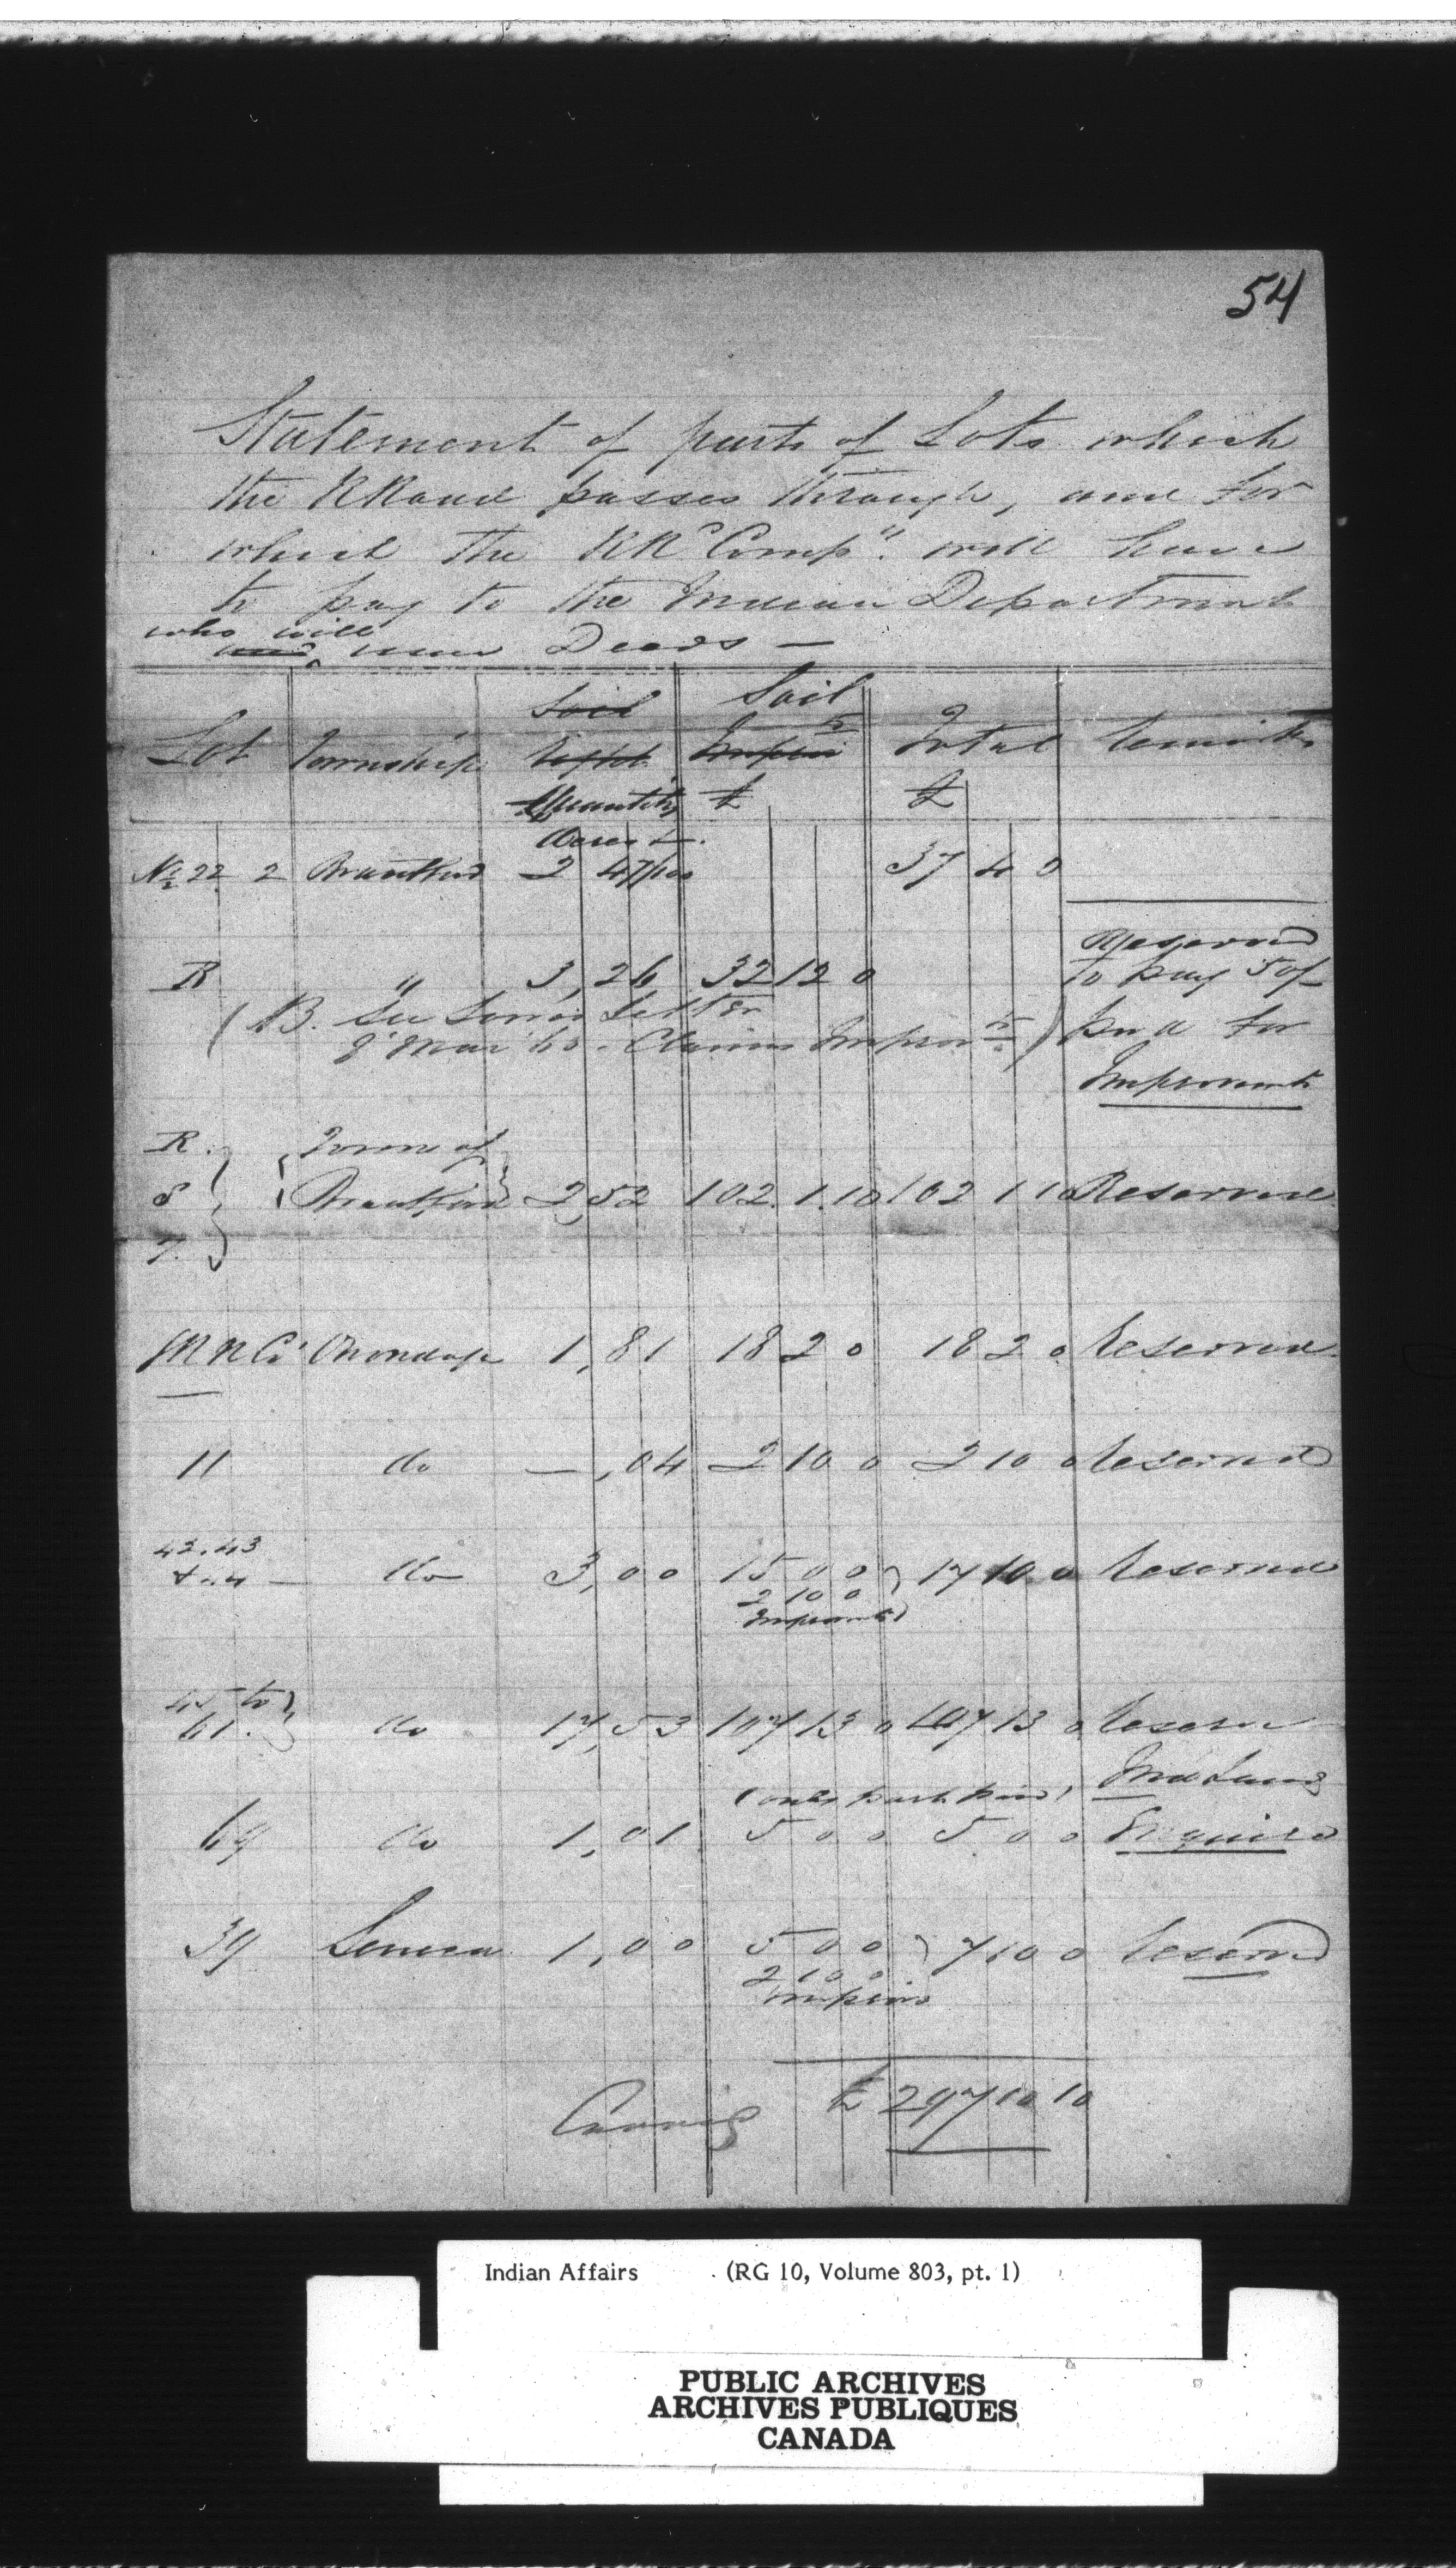 54
Statement of parts of Lots which
the RRoad passes through, and for
which the RRd Compy. will have
to pay to the Indian Department
who will
issue Deeds —
Lot Township Soil Soil Total Remarks
Quantity £ £
Acres
No 22 2 Brantford 2 47/100 37 4 0
R " 3,26 32 12 0 Reserved
to pay 50/-
(B. See Letter
Mar Claims Improvts) for
Improvements
R. Town of
8 Brantford 2,52 102. 1.10 102 1 10 Reserved
7.
GRN Co Onondaga 1,81 18 2 0 18 2 0 Reserved
11 do —,04 2 10 0 2 10 0 Reserved
42.43
& 44 — do 3,00 15 0 0 17 10 0 Reserved
2 10 0
Improvmts
45 to
61. do 17,53 107 13 0 107 13 0 Reserve
(only part paid) Ind Lands
69 do 1,01 5 0 0 5 0 0 Enquire
39 Seneca 1,00 5 0 0 7 10 0 Reserved
2 10 0
Improvs
£ 297 10 10
Indian Affairs (RG 10, Volume 803, pt. 1)
PUBLIC ARCHIVES
ARCHIVES PUBLIQUES
CANADA